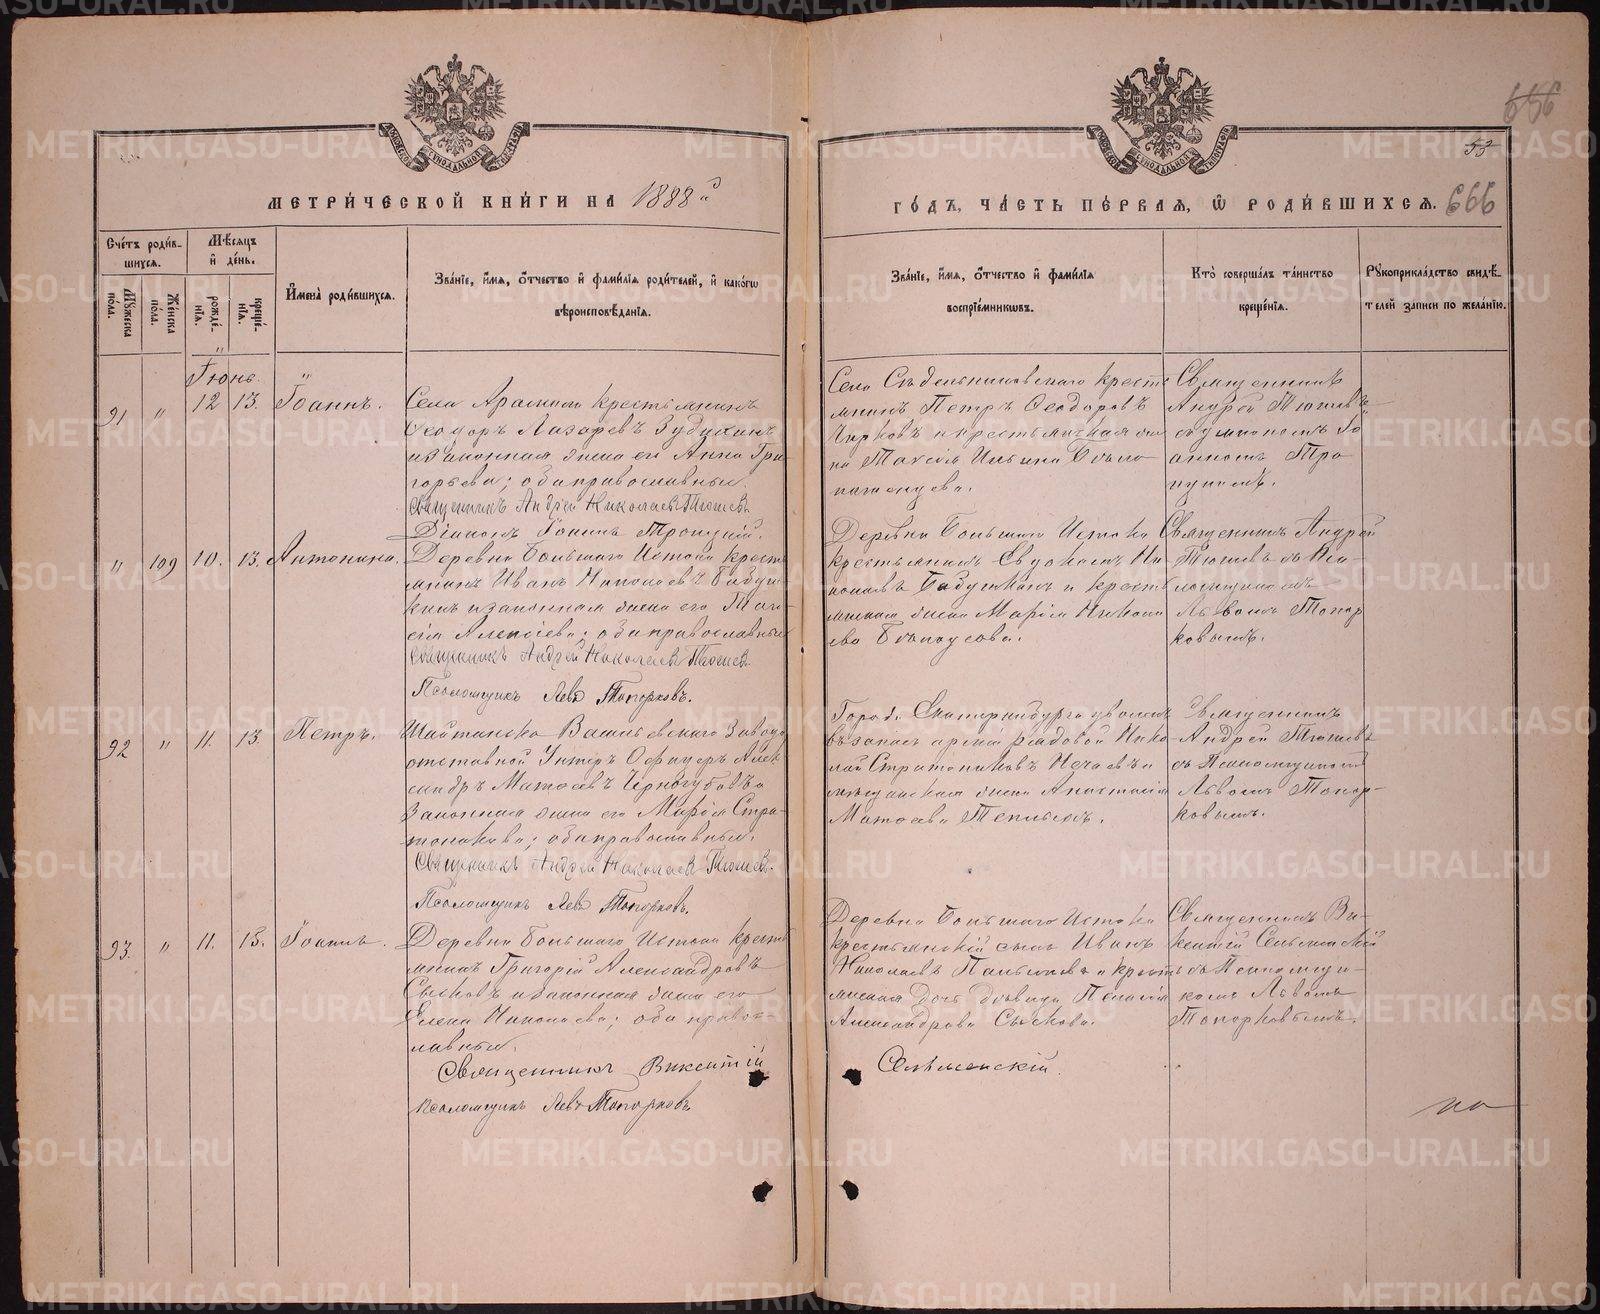 656
53
МЕТРИ́ЧЕСКОЙ КНИ́ГИ НА 1888 й
ГО́ДЪ, ЧА́СТЬ ПЕ́РВАЯ, Ѡ РОДИ́ВШИХСЯ. 666
Сче́тъ роди́в-
шихся.
Мꙋжеска по́ла.
Же́нска по́ла.
Мѣ́сяцъ
и҆ де́нь.
рожде́-
нїя.
креще́-
нїя.
И҆мена̀ роди́вшихся.
Зва́нїе, и҆́мя, ѻ҆́тчество и҆ фами́лїя роди́телей, и҆ како́гѡ
вѣроисповѣ́данїя.
Зва́нїе, и҆́мя, ѻ҆́тчество и҆ фами́лїя
воспрїе́мникѡвъ.
Кто̀ соверша́лъ та́инство
креще́нїя.
Рꙋкоприкла́дство свидѣ́-
телей записи по жела́нїю.
Іюнь.
91 " 12 13. Іоаннъ.
Села Арамили крестьянинъ
Ѳеодоръ Лазаревъ
и законная жена его Анна Гри-
горьева; оба православные.
Священникъ Андрей Николаевъ Тюшевъ
Діаконъ Іоаннъ Троицкій.
Села Седельниковскаго кресть-
янинъ Петръ Ѳеодоровъ
Чирковъ и крестьянская же-
на Таисія Ильина
Священникъ
Андрей Тюшевъ
съ діакономъ Іо-
анномъ Тро-
ицкимъ.
" 109 10. 13. Антонина.
Деревни Большаго Истока кресть-
янинъ Иванъ Николаевъ Бабуш-
кинъ и законная жена его Таи-
сія Алексіева; оба православные
Священникъ Андрей Николаевъ Тюшевъ
Псаломщикъ Левъ Топорковъ.
Деревни Большаго Истока
крестьянинъ Евдокимъ Ни-
колаевъ Бабушкинъ и кресть-
янская жена Марія Никола-
ева Бѣлоусова.
Священникъ Андрей
Тюшевъ съ Пса-
ломщикомъ
Львомъ Топор-
ковымъ.
92 " 11. 13. Петръ.
Шайтанско Васильевскаго Завода
отставной Унтеръ Офицеръ Алек-
сандръ Матѳеевъ Черногубовъ и
законная жена его Марія Стра-
тоникова; оба православные.
Священникъ Андрей Николаевъ Тюшевъ.
Псаломщикъ Левъ Топорковъ.
Города Екатеринбурга уволен.
въ запасъ арміи рядовой Нико-
лай Стратониковъ Нечаевъ и
мѣщанская жена Анастасія
Матѳеева
Священникъ
Андрей Тюшевъ
съ Псаломщикомъ
Львомъ Топор-
ковымъ.
93. " 11. 13. Іоаннъ.
Деревни Большаго Истока кресть-
янинъ Григорій Александровъ
Сысковъ и законная жена его
Елена Николаева; оба право-
славные.
Священникъ Викентій
Сельменскій.
Псаломщикъ Левъ Топорковъ
Деревни Большаго Истока
крестьянскій сынъ Иванъ
Николаевъ и кресть-
янская дочь дѣвица Пелагія
Александрова Сыскова.
Священникъ Ви-
кентій Сельменскій
съ Псаломщи-
комъ Львомъ
Топорковымъ.
METRIKI.GASO-URAL.RU